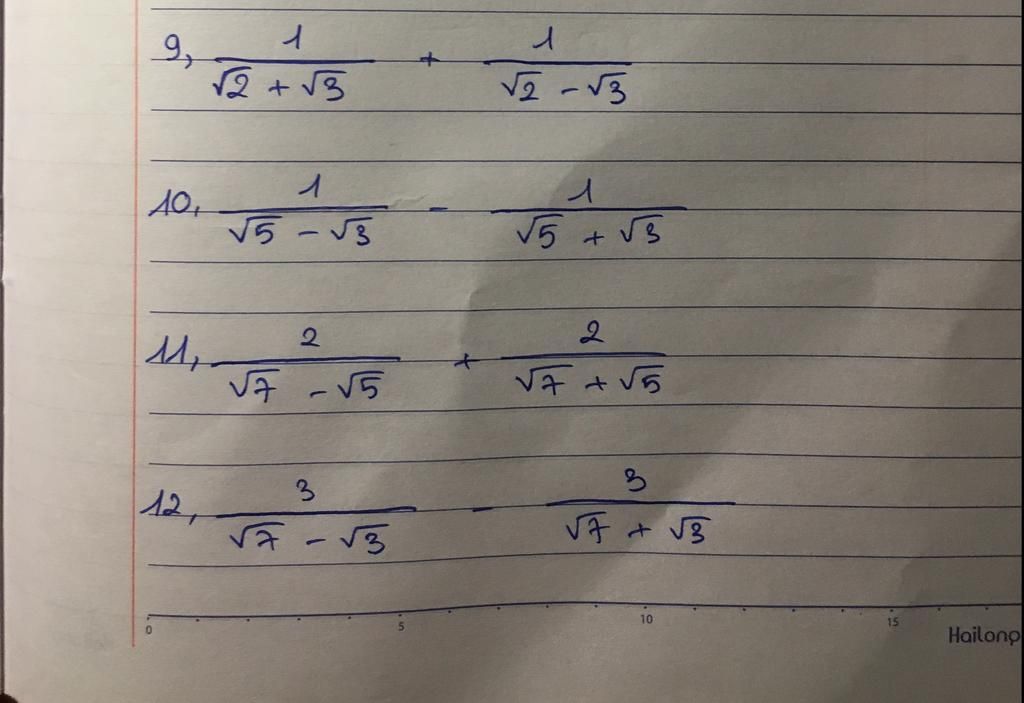 9, 1/(√2 + √3) + 1/(√2 - √3)
10, 1/(√5 - √3) - 1/(√5 + √3)
11, 2/(√7 - √5) + 2/(√7 + √5)
12, 3/(√7 - √3) - 3/(√7 + √3)
0 5 10 15
Hailong